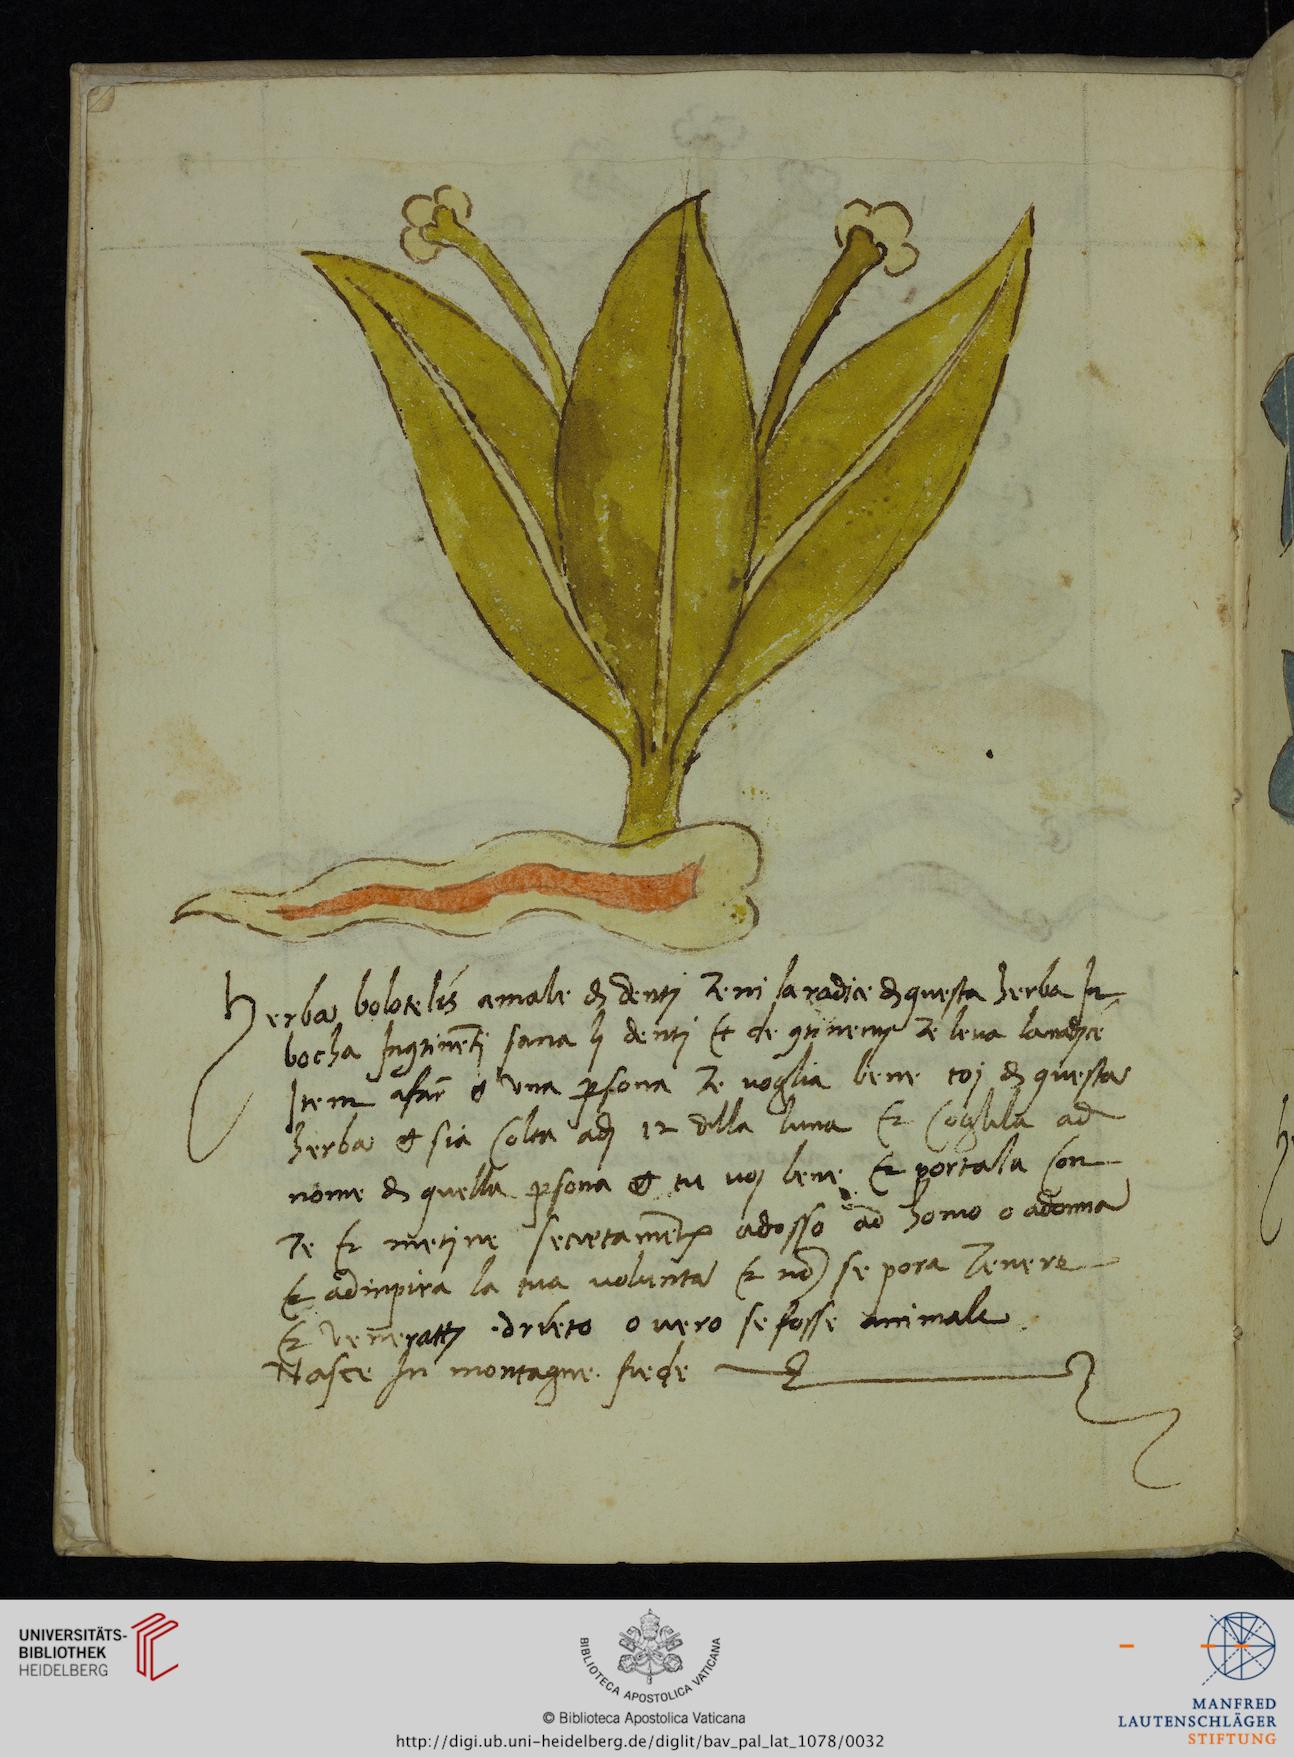 Herba bolotelis amale di denti Teni la radice di questa herba In
bocha Inqtinenti sana li denti Et de qtinenti Te leva la radice
Item afar che una persona Te voglia bene toi di questa
herba che sia Colta adi 12 della luna Et Coglila ad
nome di quella persona che tu voi bene Et portala Con
Te Et metine secretamente adosso ad homo o adonna
Et adinpira la tua volunta Et non se pora Tenere
Et Veneratti drieto overo se fosse animale
Nasce In montagne frede
UNIVERSITÄTS-
BIBLIOTHEK
HEIDELBERG
BIBLIOTECA APOSTOLICA VATICANA
© Biblioteca Apostolica Vaticana
http://digi.ub.uni-heidelberg.de/diglit/bav_pal_lat_1078/0032
MANFRED
LAUTENSCHLÄGER
STIFTUNG